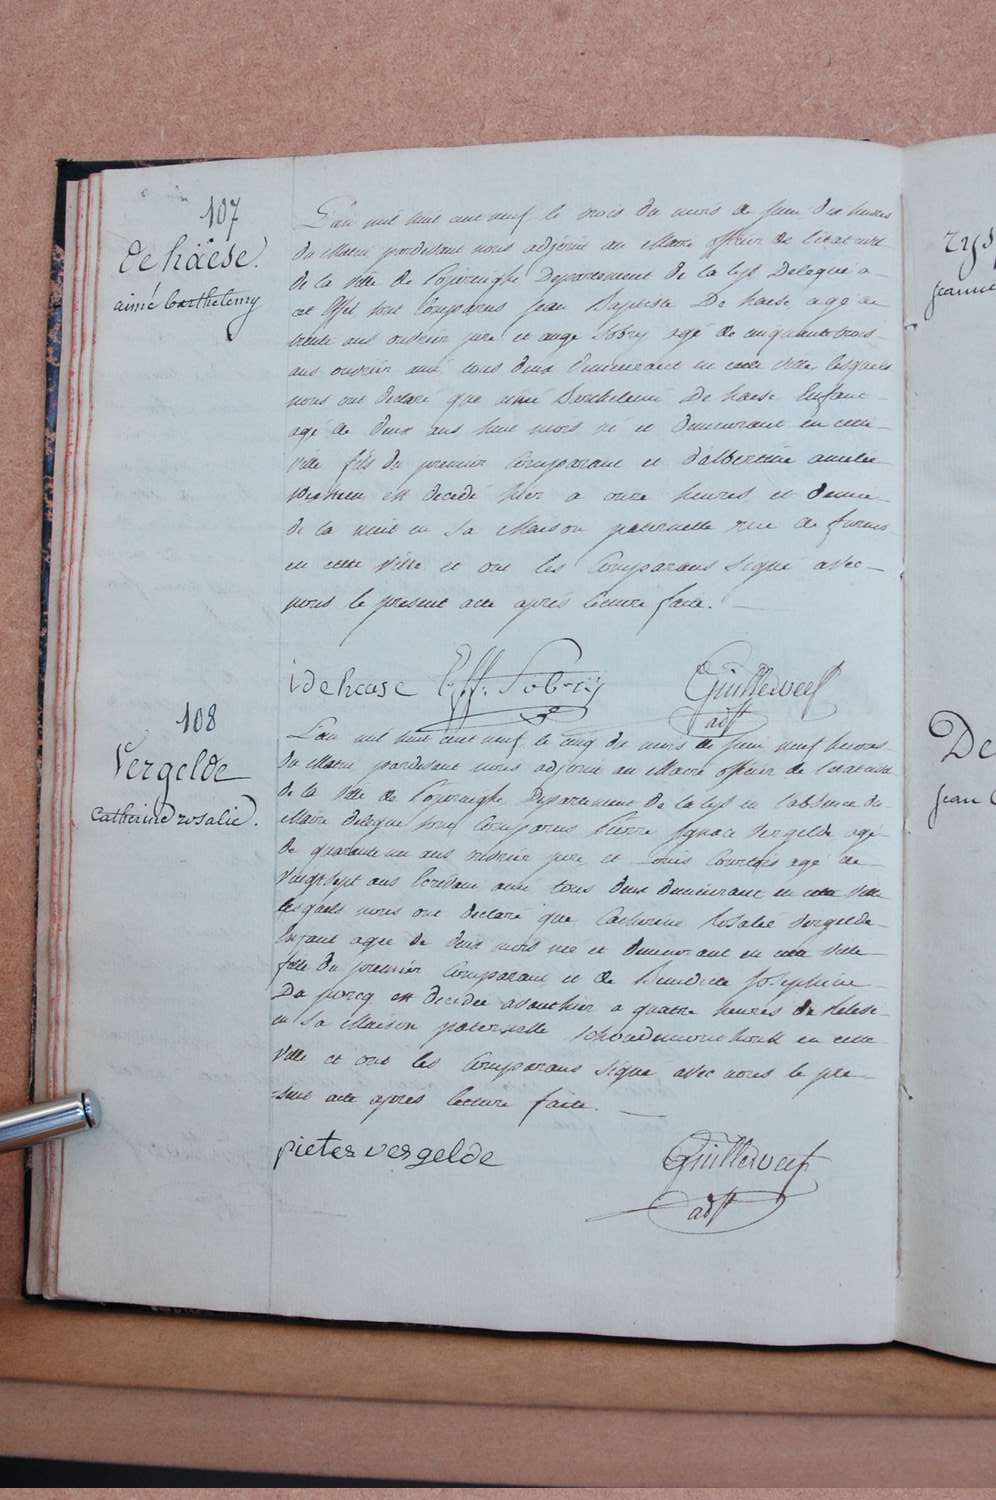 107
De häese.
aimé barthelemy
L'an mil huit cent neuf le trois du mois de juin dix heures
du Matin pardevant nous adjoint au Maire officier de l'etat civil
de la Ville de Poperinghe Departement de la Lys Delegué a
cet Effet sont Comparus jean Baptiste De haese agé de
trente ans ouvrier pere et ange Sobry agé de cinquante trois
ans ouvrier ami tous deux Demeurant en cette ville lesquels
nous ont declaré que aimé Berthelemi De haese Enfant
agé de deux ans huit mois né et Demeurant en cette
ville fils du premier Comparant et d'albertine amelie
est decedé hier a onze heures et demie
de la nuit en Sa Maison paternelle rue de furnes
en cette Ville et ont les Comparans Signé avec
nous le present acte aprés lecture faite.
idehease Sobry Guilleweef
adjt
108
Vergelde
catherine rosalie.
L'an mil huit cent neuf le cinq du mois de juin neuf heures
du Matin pardevant nous adjoint au Maire officier de l'etat civil
de la Ville de Poperinghe Departement de la Lys en l'absence du
Maire delegué sont Comparus Pierre Ignace Vergelde agé
de quarante un ans ouvrier pere et Louis Courtois agé de
Vingt Sept ans Ecrivain ami tous deux Demeurant en cette Ville
lesquels nous ont declaré que Catherine Rosalie Vergelde
Enfant agée de deux mois née et Demeurant en cette Ville
fille du premier Comparant et de Benedicte Josephine
Du jurcq est decedée avanthier a quatre heures de relevé
en Sa Maison paternelle en cette
Ville et ont les Comparans Signé avec nous le pre-
-sent acte aprés lecture faite.
pieter vergelde Guilleweef
adjt
rys
jeanne
De
jean